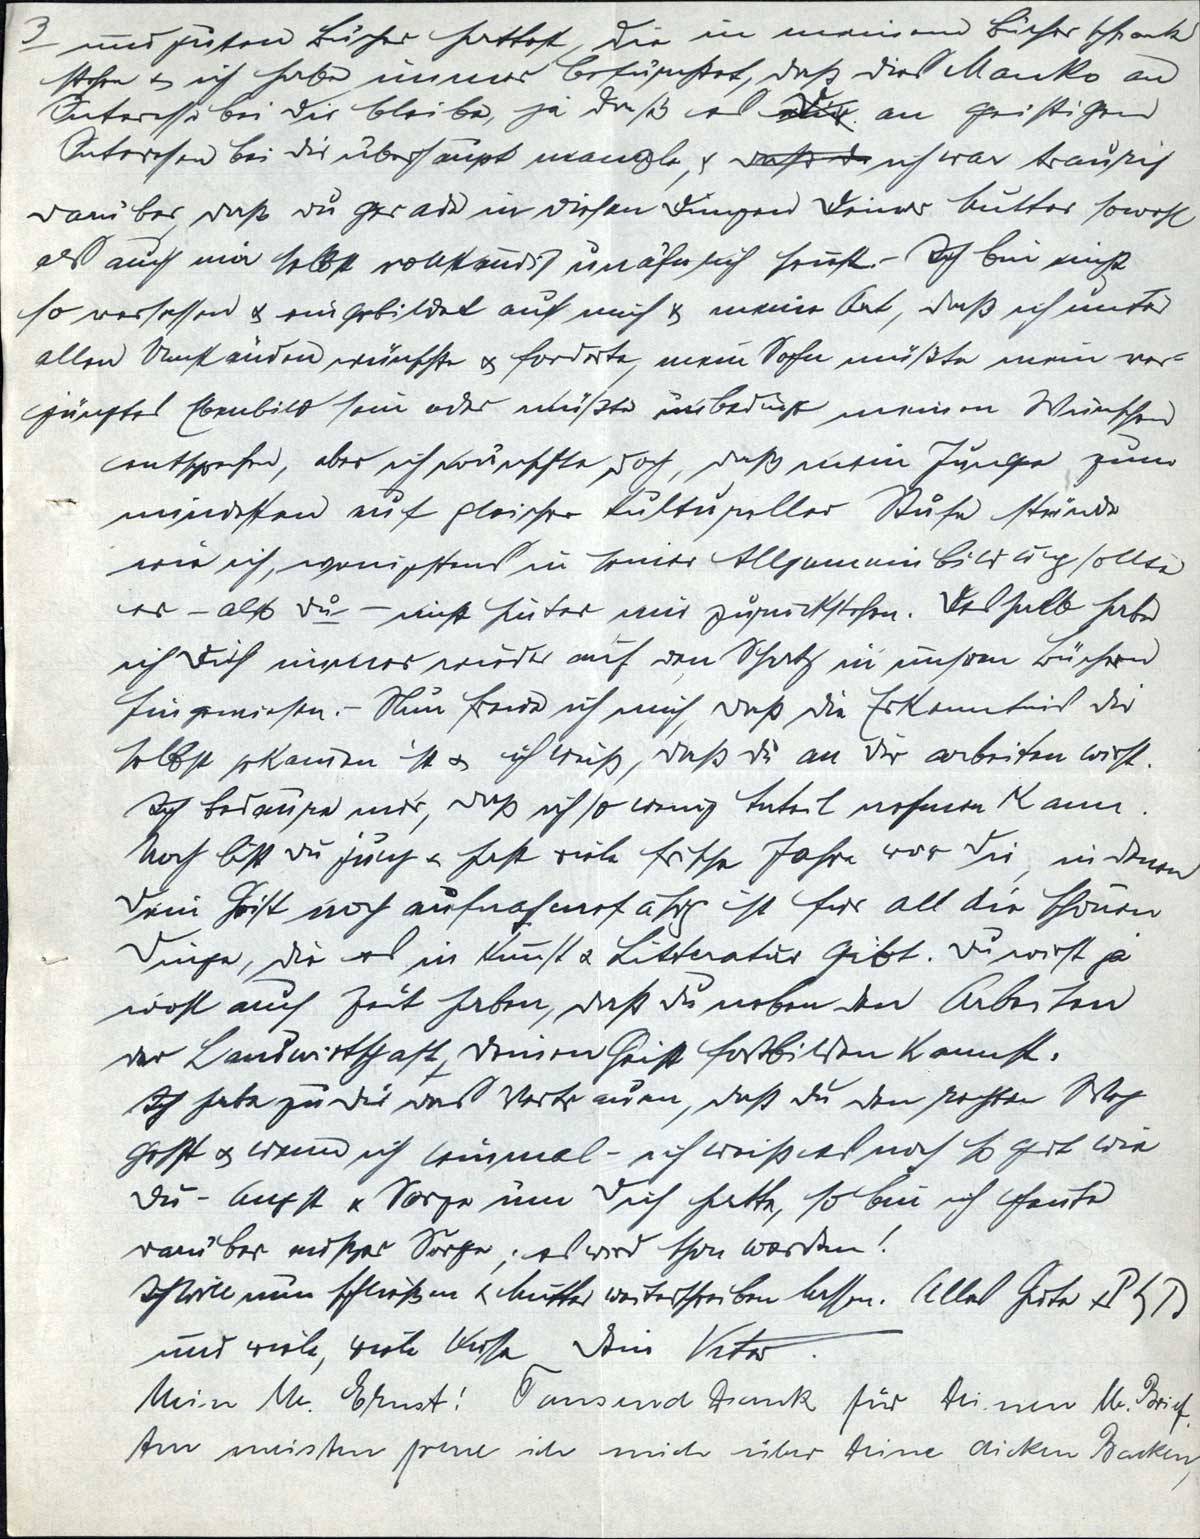 3 und guten Bücher hattest, die in meinem Bücherschrank
stehn & ich habe immer befürchtet, daß dies Manko an
Interesse bei dir bleibe, ja daß es an geistigen
Interessen bei dir überhaupt mangle, & daß du ich war traurig
darüber, daß du gerade in diesen Dingen Deiner Mutter sowohl
als auch mir selbst vollständig unähnlich seist. – Ich bin nicht
so versessen & eingebildet auf mich & meine Art, daß ich unter
allen Umständen wünschte & forderte, mein Sohn müßte mein ver-
jüngtes Ebenbild sein oder müßte unbedingt meinen Wünschen
entsprechen, aber ich wünschte doch, daß mein Junge zum
mindesten auf gleicher kultureller Stufe stünde
wie ich, wenigstens in seiner Allgemeinbildung sollte
er – also du – nicht hinter mir zurückstehen. Deshalb habe
ich Dich immer wieder auf den Schatz in unsren Büchern
hingewiesen. – Nun freue ich mich, daß die Erkenntnis dir
selbst gekommen ist & ich weiß, daß du an dir arbeiten wirst.
Ich bedaure nur, daß ich so wenig Anteil nehmen kann.
Noch bist du jung & hast viele frische Jahre vor dir, in denen
dein Geist noch aufnahmefähig ist für all die schönen
Dinge, die es in Kunst & Litteratur gibt. Du wirst ja
wohl auch Zeit haben, daß du neben den Arbeiten
der Landwirtschaft, deinen Geist fortbilden kannst.
Ich habe zu dir das Vertrauen, daß du den rechten Weg
gehst & wenn ich einmal – ich weiß es noch so gut wie
du – Angst & Sorge um dich hatte, so bin ich heute
darüber außer Sorge; es wird schon werden!
Ich will nun schließen & Mutter weiterschreiben lassen. Alles Gute
und viele, viele Küsse Dein Vater.
Mein kl. Ernst! Tausend Dank für Deinen kl. Brief.
Am meisten freue ich mich über Deine dicken Backen,